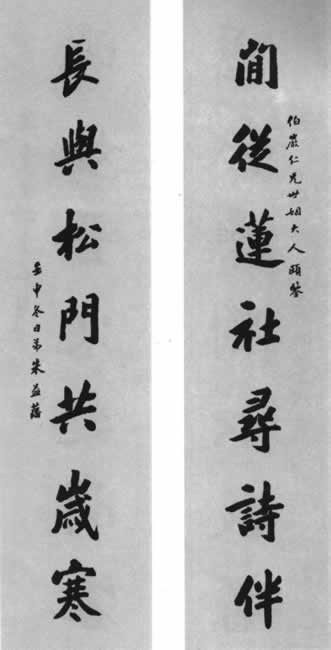 閒從蓮社尋詩伴
伯巖仁兄世姻大人頤答
長與松門共歲寒
壬申冬日弟朱益藩